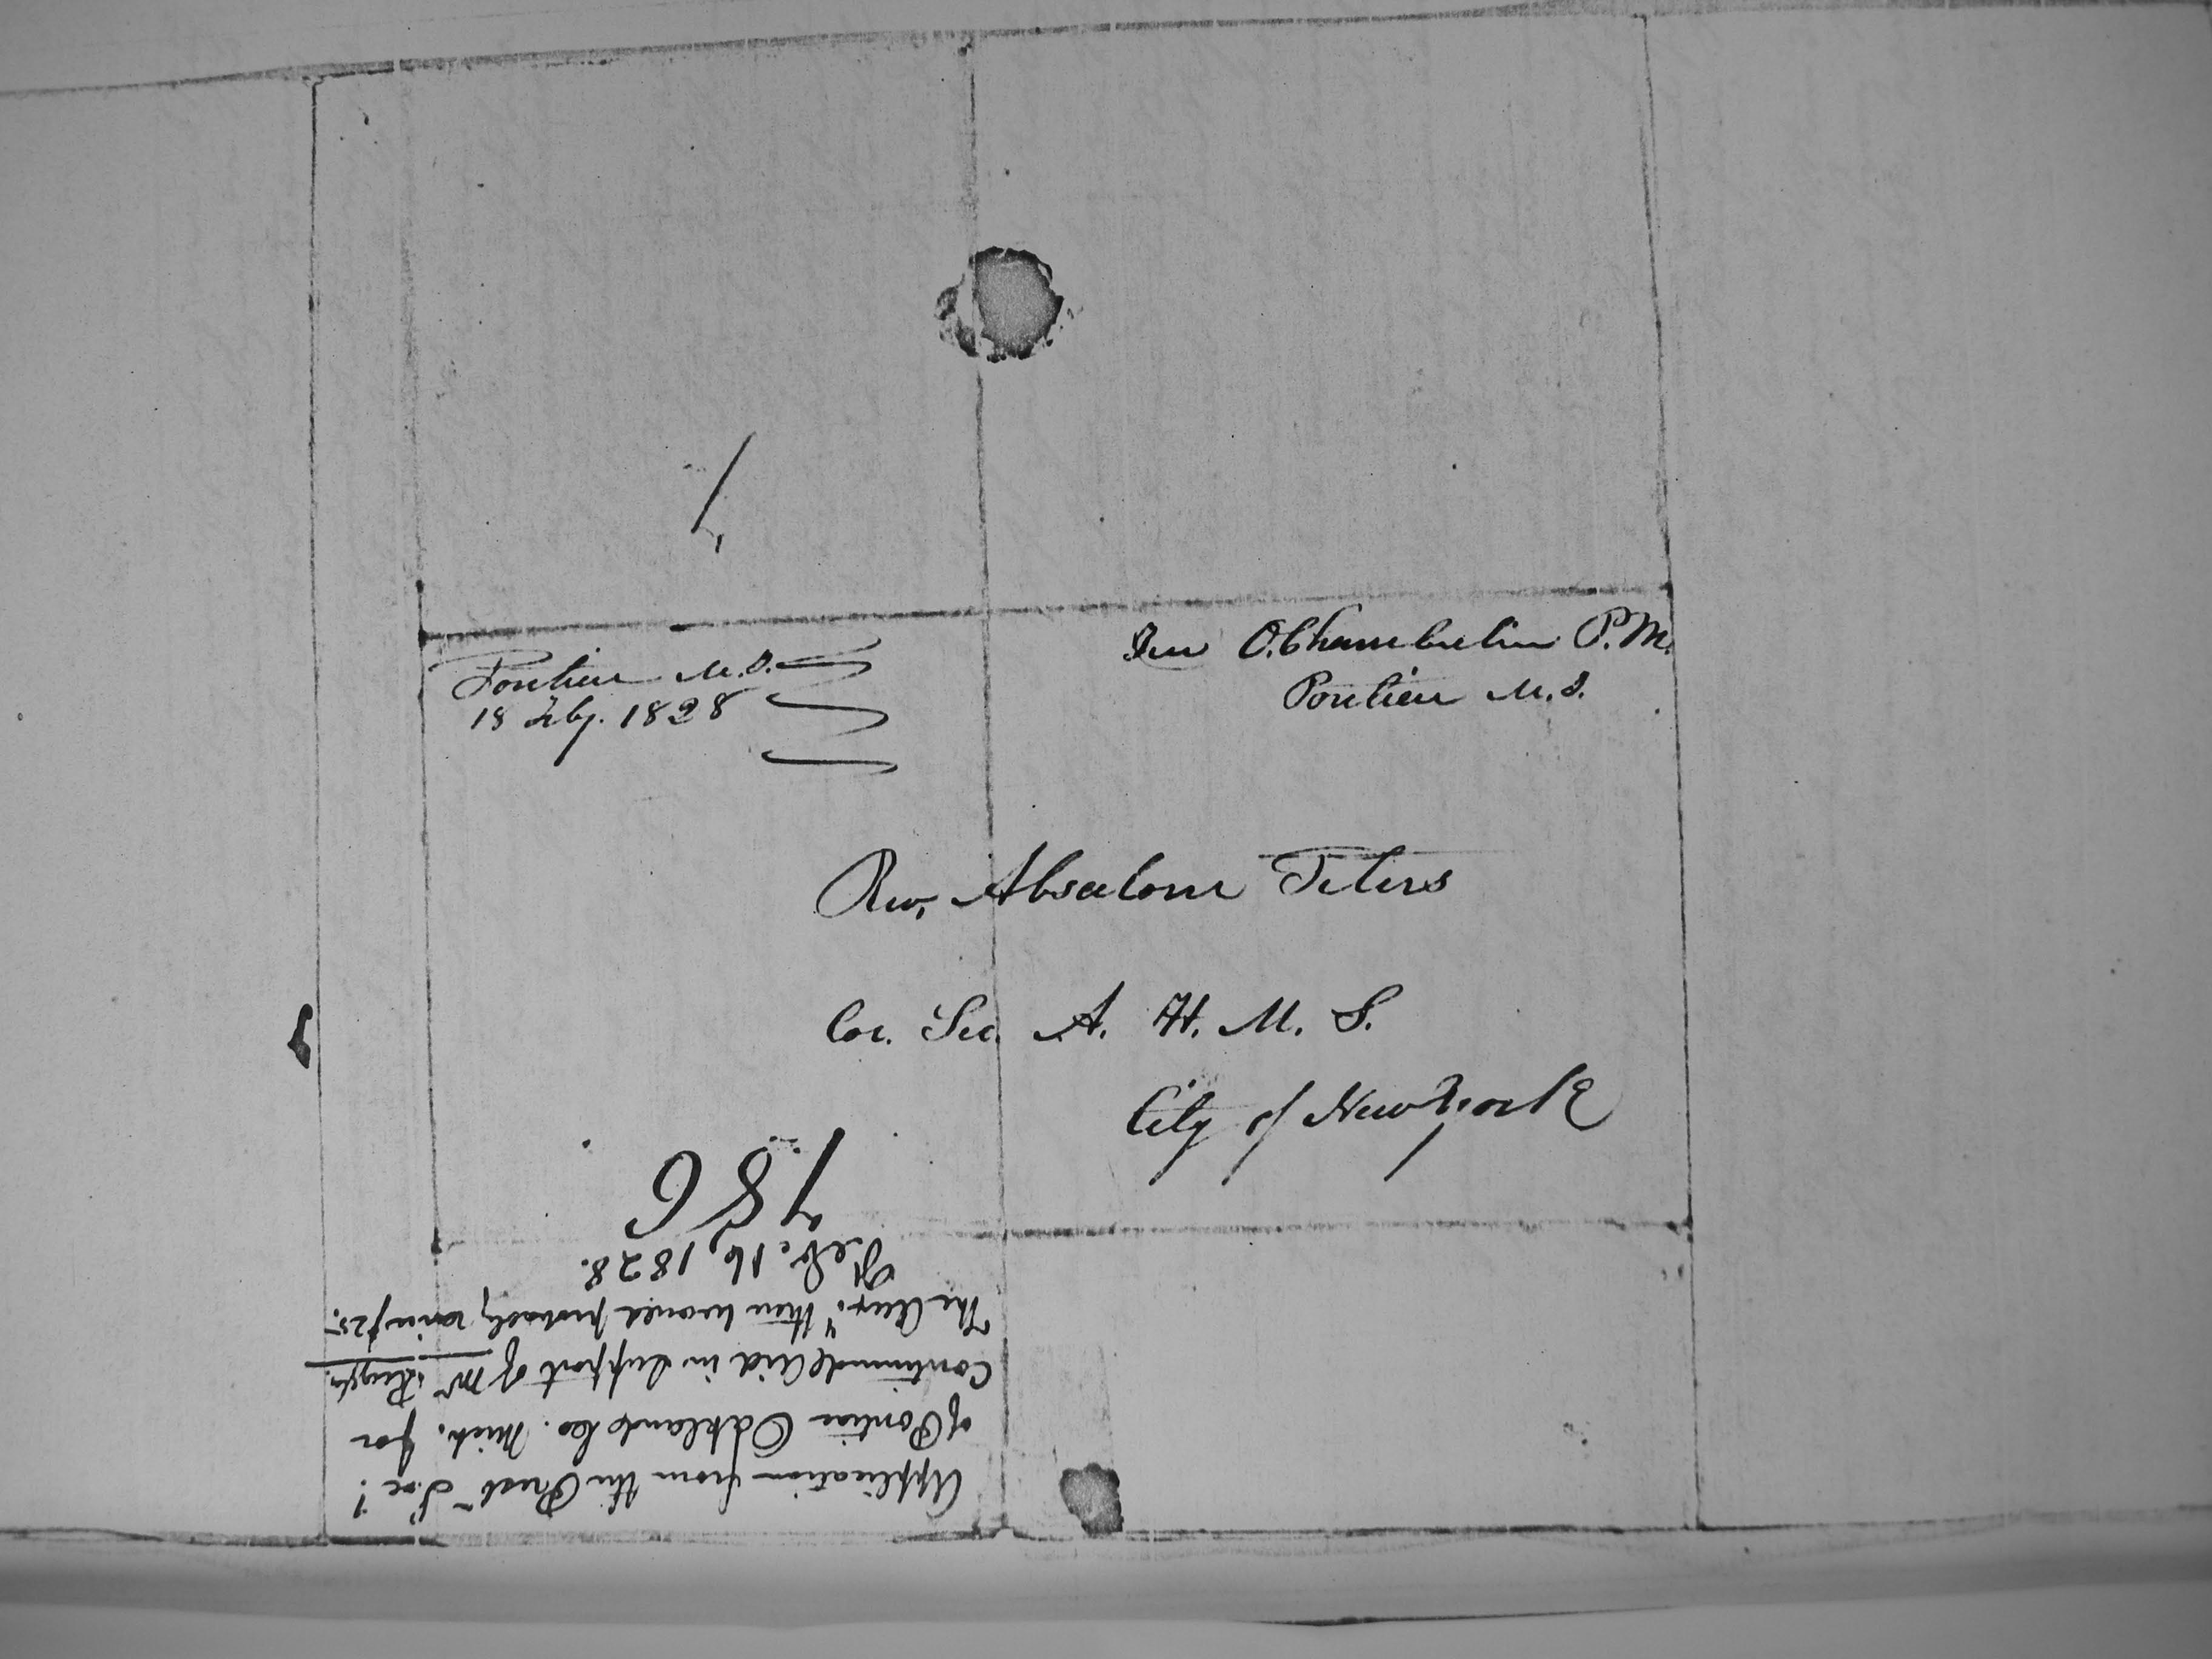 Pontiac M.T.
18 Feby. 1828
Free O. Chamberlin P.M.
Pontiac M.T.
Rev. Absalom Peters
Cor. Sec. A. H. M. S.
City of New York
Application from the Presb Soc!
of Pontiac Oakland Co. Mich. for
continued aid in support of Mr
The then would probably raise $25.
Feb. 16, 1828.
786